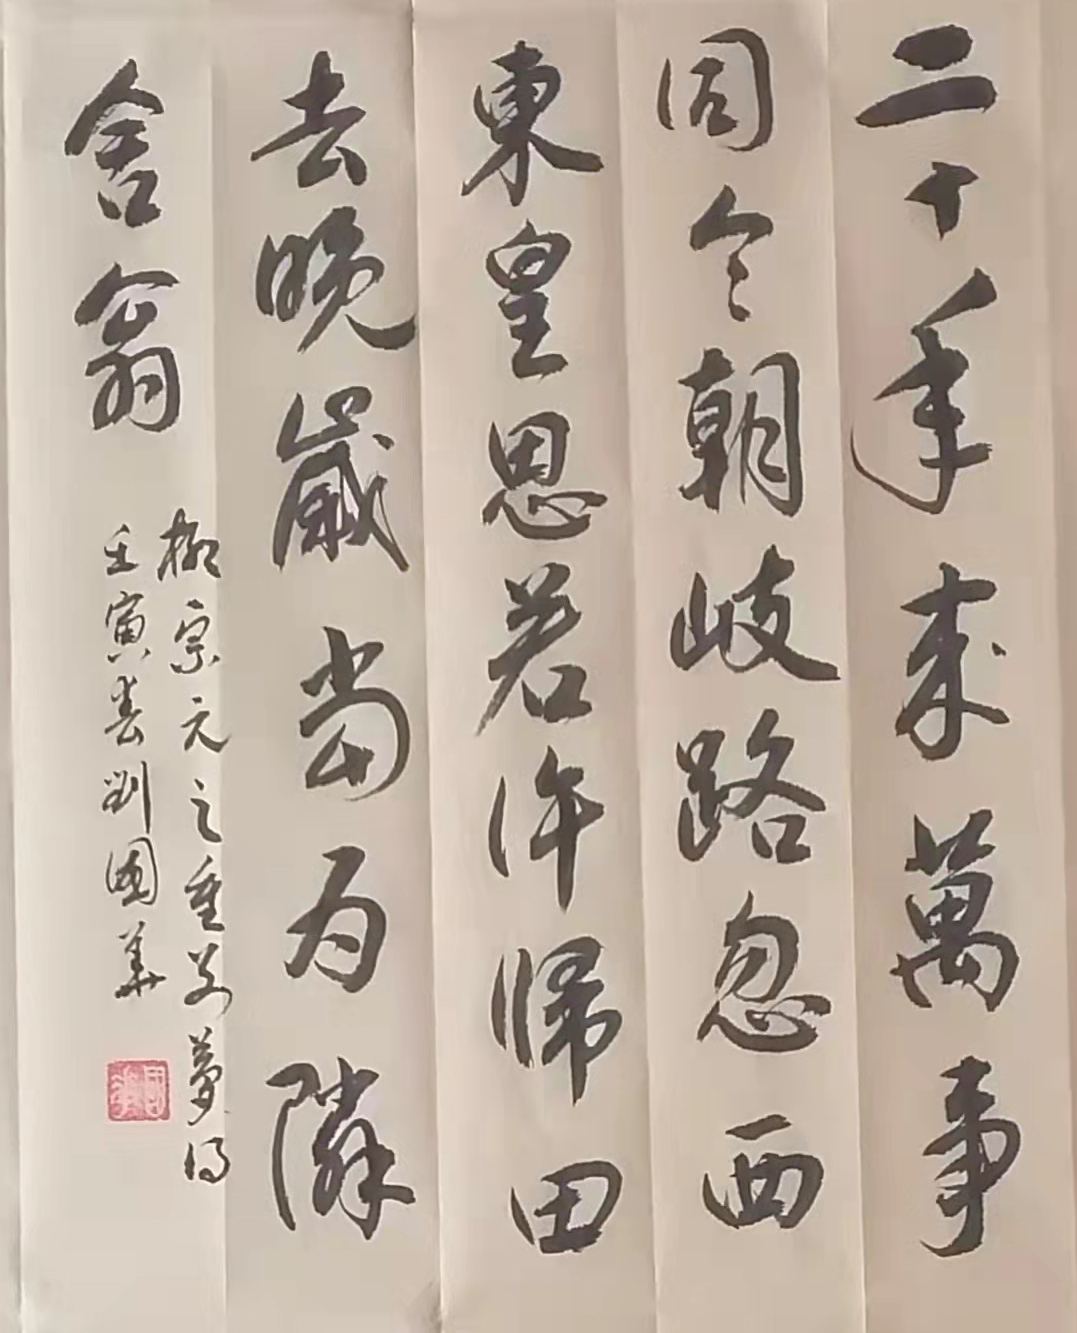 二十年來萬事
同今朝岐路忽西
東皇恩若許歸田
去晚歲當為隣
舍翁
柳宗元之重别夢得
壬寅春劉國華
國華